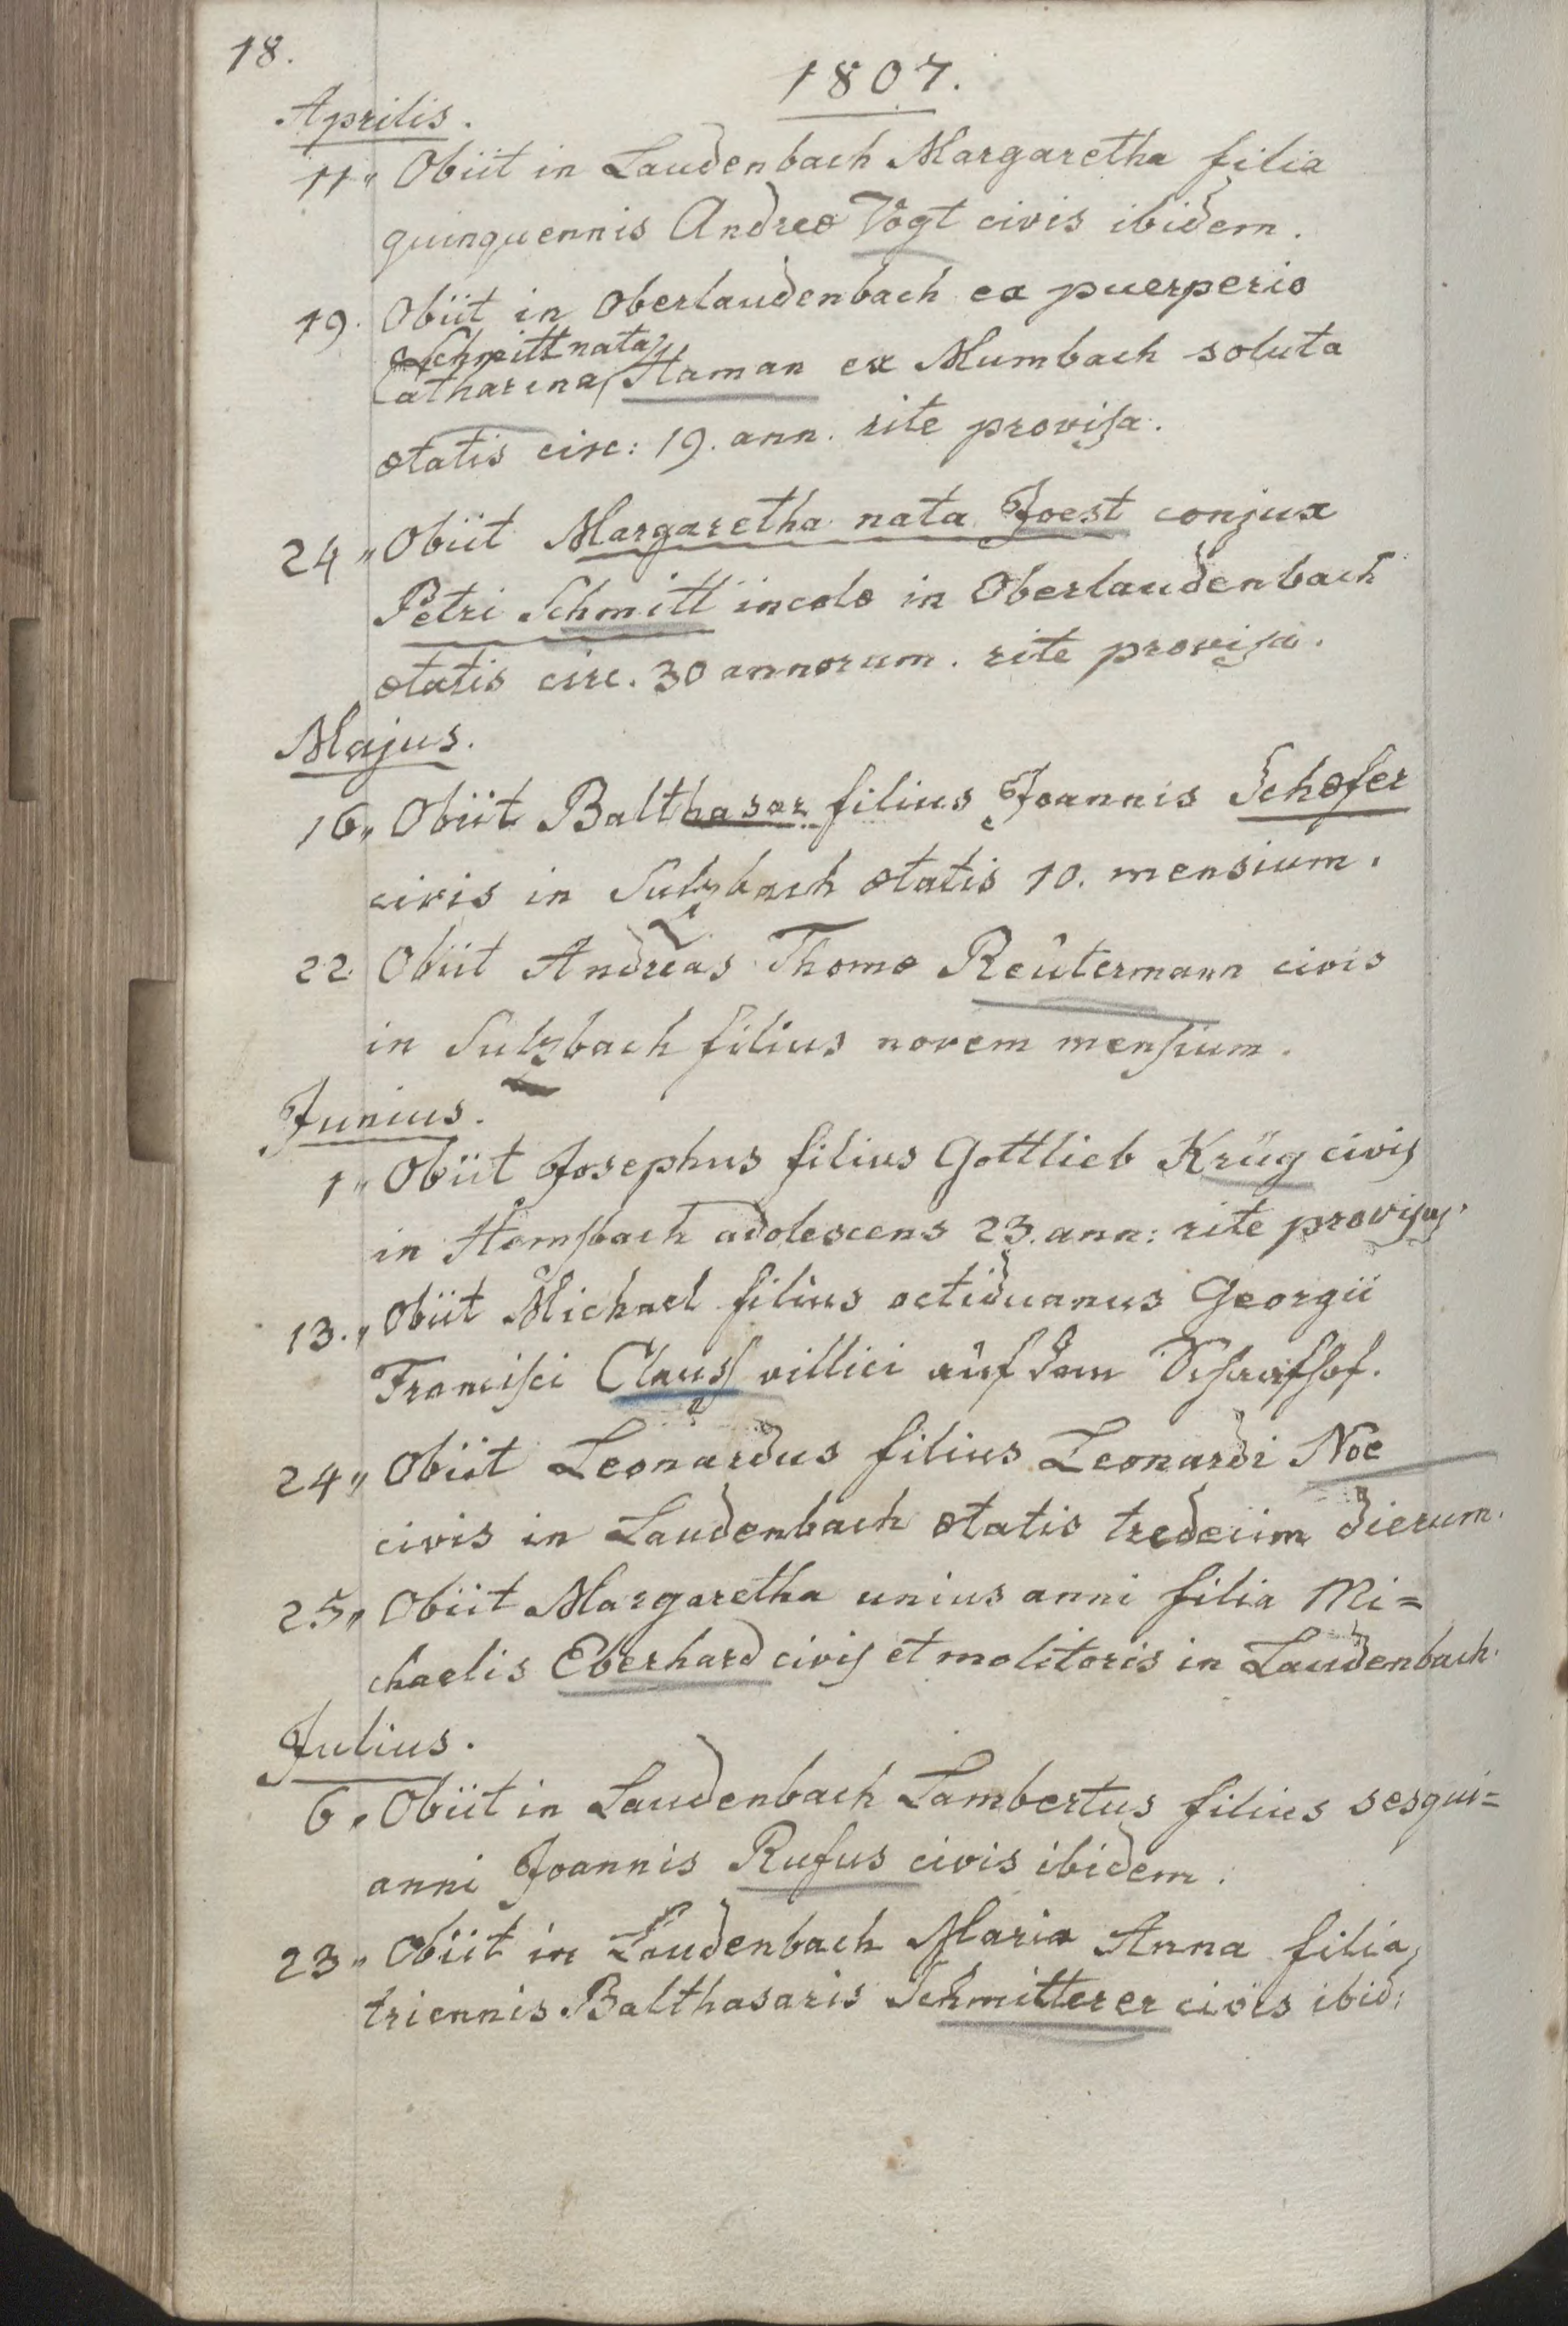 18.
1807.
Aprilis.
11„ Obiit in Laudenbach Margaretha filia
quinquennis Andreæ Vogt civis ibidem.
19. Obiit in Oberlaudenbach ex puerperio
Schmitt nata
Catharina Haman ex Mumbach soluta
ætatis circ: 19. ann. rite provisa.
24„ Obiit Margaretha nata Joest conjux
Petri Schmitt incolæ in Oberlaudenbach
ætatis circ. 30 annorum. rite provisa.
Majus.
16„ Obiit Balthasar filius Joannis Schæfer
civis in Sulzbach ætatis 10. mensium.
22. Obiit Andreas Thomæ Reutermann civis
in Sulzbach filius novem mensium.
Junius.
1„ Obiit Josephus filius Gottlieb Krŭg civis
in Hemsbach adolescens 23. ann: rite provisus.
13.„ Obiit Michael filius octiduanus Georgii
Francisci Clauss villici auf dem Schaafhof.
24„ Obiit Leonardus filius Leonardi Noe
civis in Laudenbach ætatis tredecim dierum.
25„ Obiit Margaretha unius anni filia Mi=
chaelis Eberhard civis et molitoris in Laudenbach.
Julius.
6„ Obiit in Laudenbach Lambertus filius sesqui=
anni Joannis Rufus civis ibidem.
23„ Obiit in Laudenbach Maria Anna filia
triennis Balthasaris Schmitterer civis ibid: